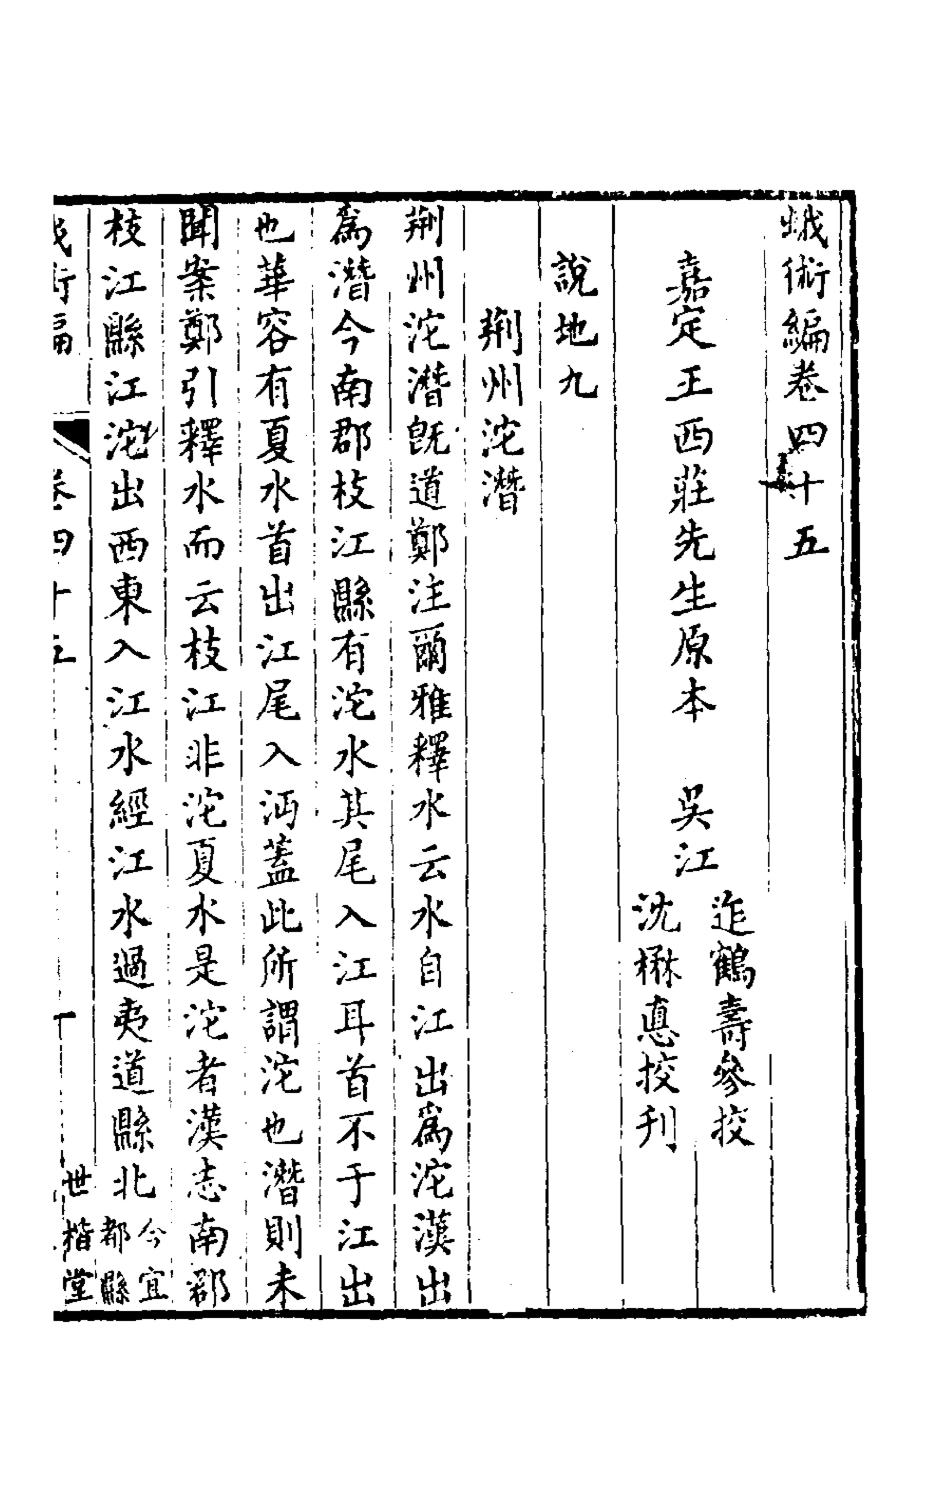 蛾術編卷四十五
嘉定王西莊先生原本　吳江
迮鶴壽參挍
沈楙悳挍刊
說地九
荆州沱潛
荆州沱潛旣道鄭注爾雅釋水云水自江出爲沱漢出
爲潛今南郡枝江縣有沱水其尾入江耳首不于江出
也華容有夏水首出江尾入沔蓋此所謂沱也潛則未
聞案鄭引釋水而云枝江非沱夏水是沱者漢志南郡
枝江縣江沱出西東入江水經江水過夷道縣北今宜
都縣
卷四十五
世楷堂